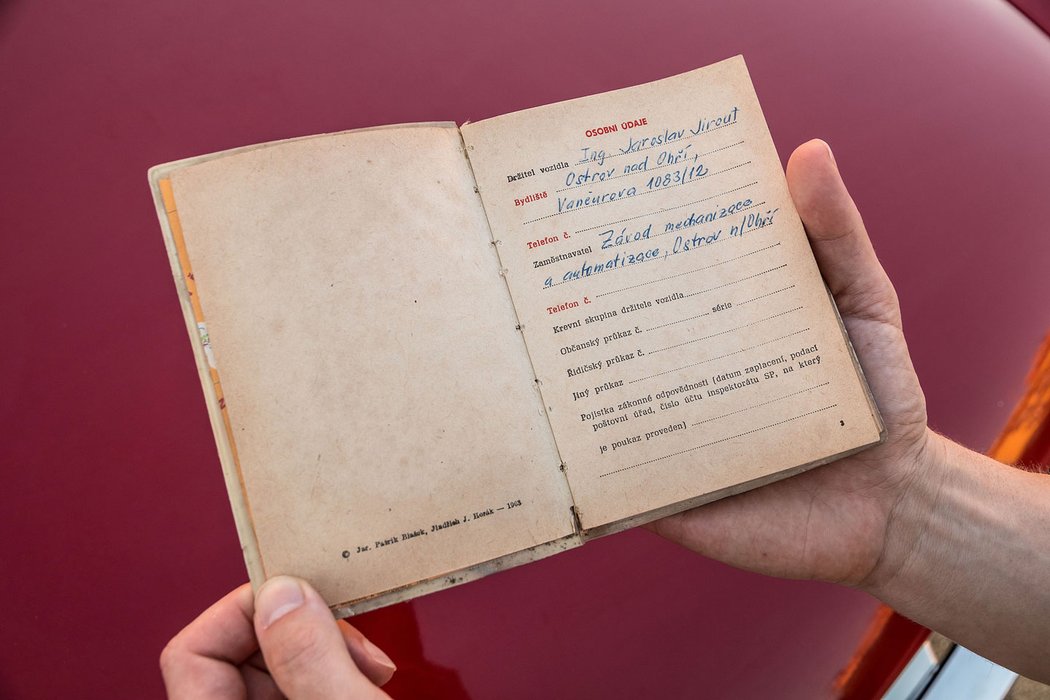 © Jur. Patrik Blažek, Jindřich J. Horák — 1963
OSOBNÍ ÚDAJE
Držitel vozidla Ing Jaroslav Jirout
Bydliště Ostrov nad Ohří,
Vančurova 1083/12
Telefon č.
Zaměstnavatel Závod mechanizace
a automatizace, Ostrov n/Ohří
Telefon č.
Krevní skupina držitele vozidla
Občanský průkaz č. série
Řidičský průkaz č.
Jiný průkaz
Pojistka zákonné odpovědnosti (datum zaplacení, podací
poštovní úřad, číslo účtu inspektorátu SP, na který
je poukaz proveden)
3